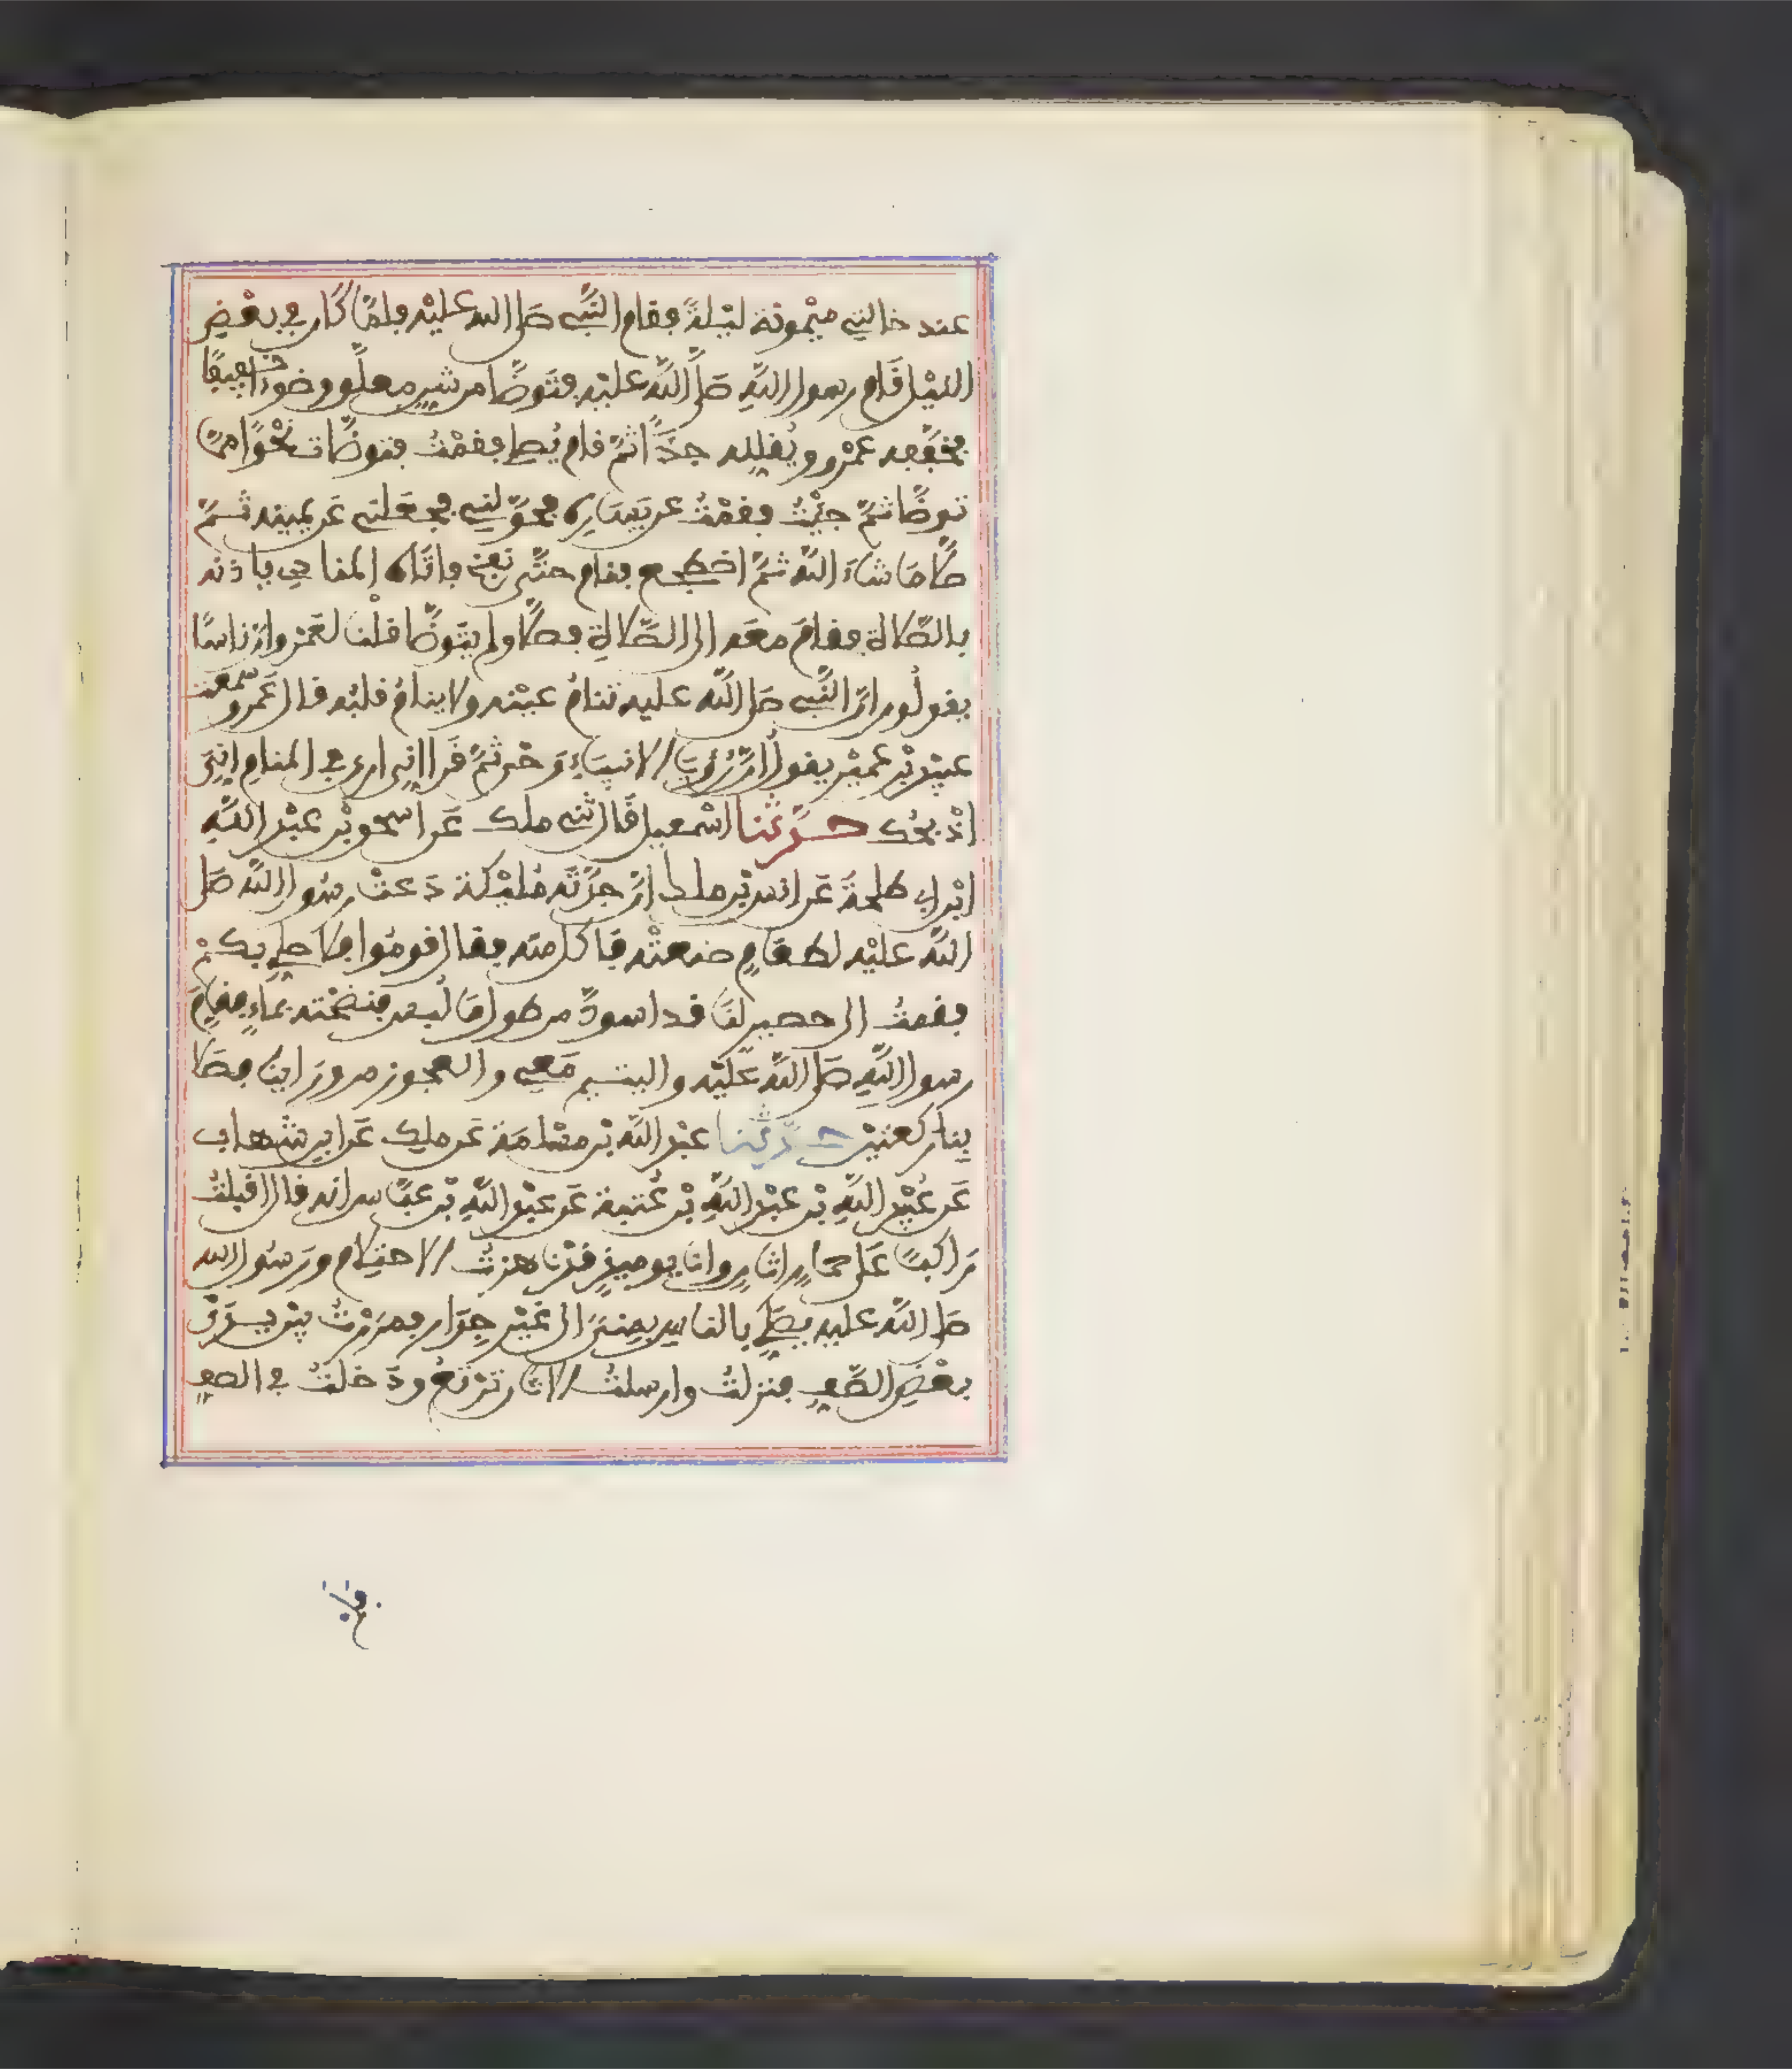 عند خالتي ميْمونة ليْلةً فقام النَّبي صَلى الله عليْه فلمَّا كَان في بعْضِ
الليْل قَام رسول اللَّهِ صَلَّى اللَّه عليْه فتوضَّا من شنٍ معلَّق وضوءًا خفيفًا
يخفِّفه عمْرو ويُقلِله جدًّا ثمَّ قام يُصلِي فقمْتُ فتوضَّات نحْوًا ممَّا
توضَّا ثمَّ جئْتُ فقمْتُ عن يَسَاره فحوَّلنِي فجعَلني عَن يمينه ثمَّ
صلَّى مَا شاءَ اللَّه ثمَّ اضطجع فنام حتَّى نفخ فاتَاه المنادِي ياذنه
بالصَّلاة فقامَ معَه الى الصَّلاةِ فصلَّى ولم يتوضَّا قلْنا لعَمْرو ان ناسًا
يقولُون انَّ النَّبي صَلى اللَّه عليه تنامُ عيْنه ولا ينامُ قلبُه قال عَمْرو سمعت
عبيْد بْن عُميْر يقولُ انَّ رُؤيَا الانبيَاءِ وَحْي ثمَّ قَرا اِنِي ارى في المنامِ انِيَ
اذْبحُك حدَّثنا اسْمعيل قَال ثني ملك عَن اسحق بْن عبْد اللَّهِ
ابْن ابي طلحةَ عَن انس بْن ملك انَّ جدَّتَه مُليْكة دَعتْ رسُول اللَّه صَلى
اللَّه عليْه لطعَامٍ صنعتْه فاكل منه فقال قومُوا فلاصلِي بكمْ
فقمتُ الى حصيرٍ لنَا قد اسودَّ من طول مَا لُبس فنضحْته بمَاءٍ فقامَ
رسول اللَّهِ صَلى اللَّه عَليْه واليتيم مَعِي والعجوز من ورَائِنا فصَلى
بِنا ركعتيْن حدَّثنا عبْد اللَّه بْن مسْلمَة عَن ملِك عَن ابن شهاب
عَن عُبيْد اللَّهِ بْن عبْد اللَّهِ بْن عُتبة عَن عبْد اللَّهِ بْن عبَّاس انه قال اقبلتُ
رَاكبًا عَلى حمَارٍ اتَانٍ وانَا يومئِذٍ قدْ ناهزتُ الاحتِلام ورَسُول الله
صَلى اللَّه عليه يصَلِي بالناسِ بِمنىً الى غَيْر جِدَار فمرَرْتُ بيْن يدَيْ
بعْضِ الصَّفِ فنزلتُ وارسلتُ الاتَان ترْتعُ ودَخلتُ في الصفِ